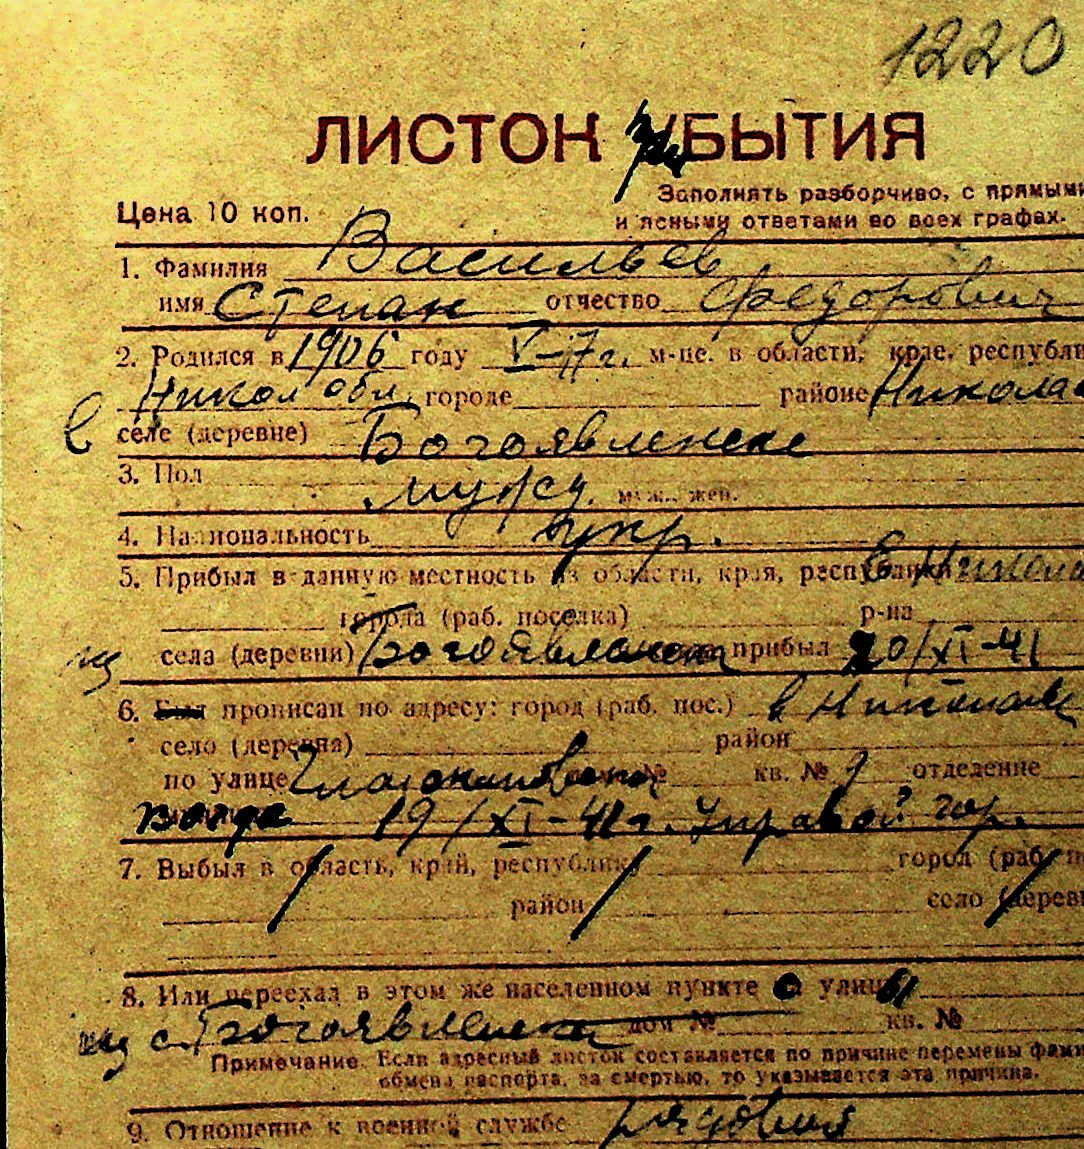 1220
ЛИСТОК при УБЫТИЯ
Заполнять разборчиво, с прямыми
и ясными ответами во всех графах.
Цена 10 коп.
1. Фамилия Васильев
имя Степан отчество Федорович
2. Родился в 1906 году V-17г. м-це. в области, крае. республи
Никол обл. городе районе Никола
в селе (деревне) Богоявленске
3. Пол мужс. муж., жен.
4. Национальность укр.
5. Прибыл в данную местность из области, края, республики Никола
города (раб. поселка) р-на
из села (деревни) Богоявленска прибыл 20/XI-41
6. Был прописан по адресу: город (раб. пос.) в Николаев
село (деревня) район
по улице № кв. № отделение
когда 19/XI-41г. гор.
7. Выбыл в область, край, республику город (раб. п
район село (дерев
8. Или переехал в этом же населенном пункте с улицы
из с. Богоявленска дом № кв. №
Примечание. Если адресный листок составляется по причине перемены фам
обмена паспорта, за смертью, то указывается эта причина.
9. Отношение к военной службе рядовый